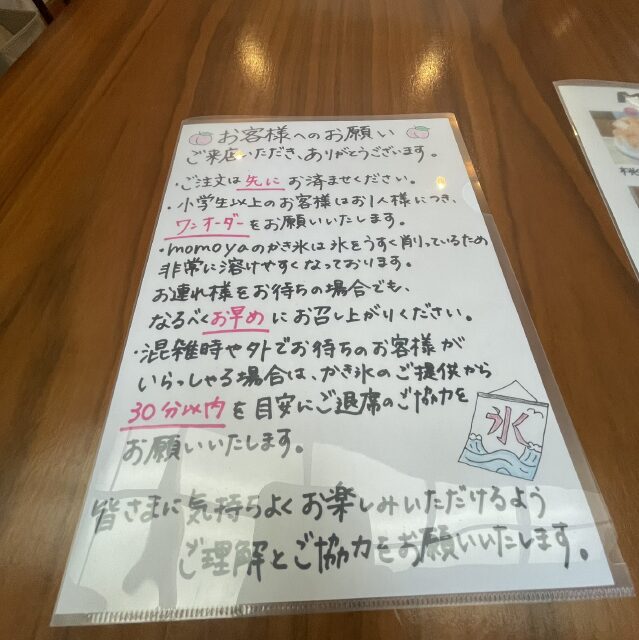 お客様へのお願い
ご来店いただき、ありがとうございます。
・ご注文は先にお済ませください。
・小学生以上のお客様はお1人様につき、
ワンオーダーをお願いいたします。
・momoyaのかき氷は氷をうすく削っているため
非常に溶けやすくなっております。
お連れ様をお待ちの場合でも、
なるべくお早めにお召し上がりください。
・混雑時や外でお待ちのお客様が
いらっしゃる場合は、かき氷のご提供から
30分以内を目安にご退席のご協力を
お願いいたします。
氷
皆さまに気持ちよくお楽しみいただけるよう
ご理解とご協力をお願いいたします。